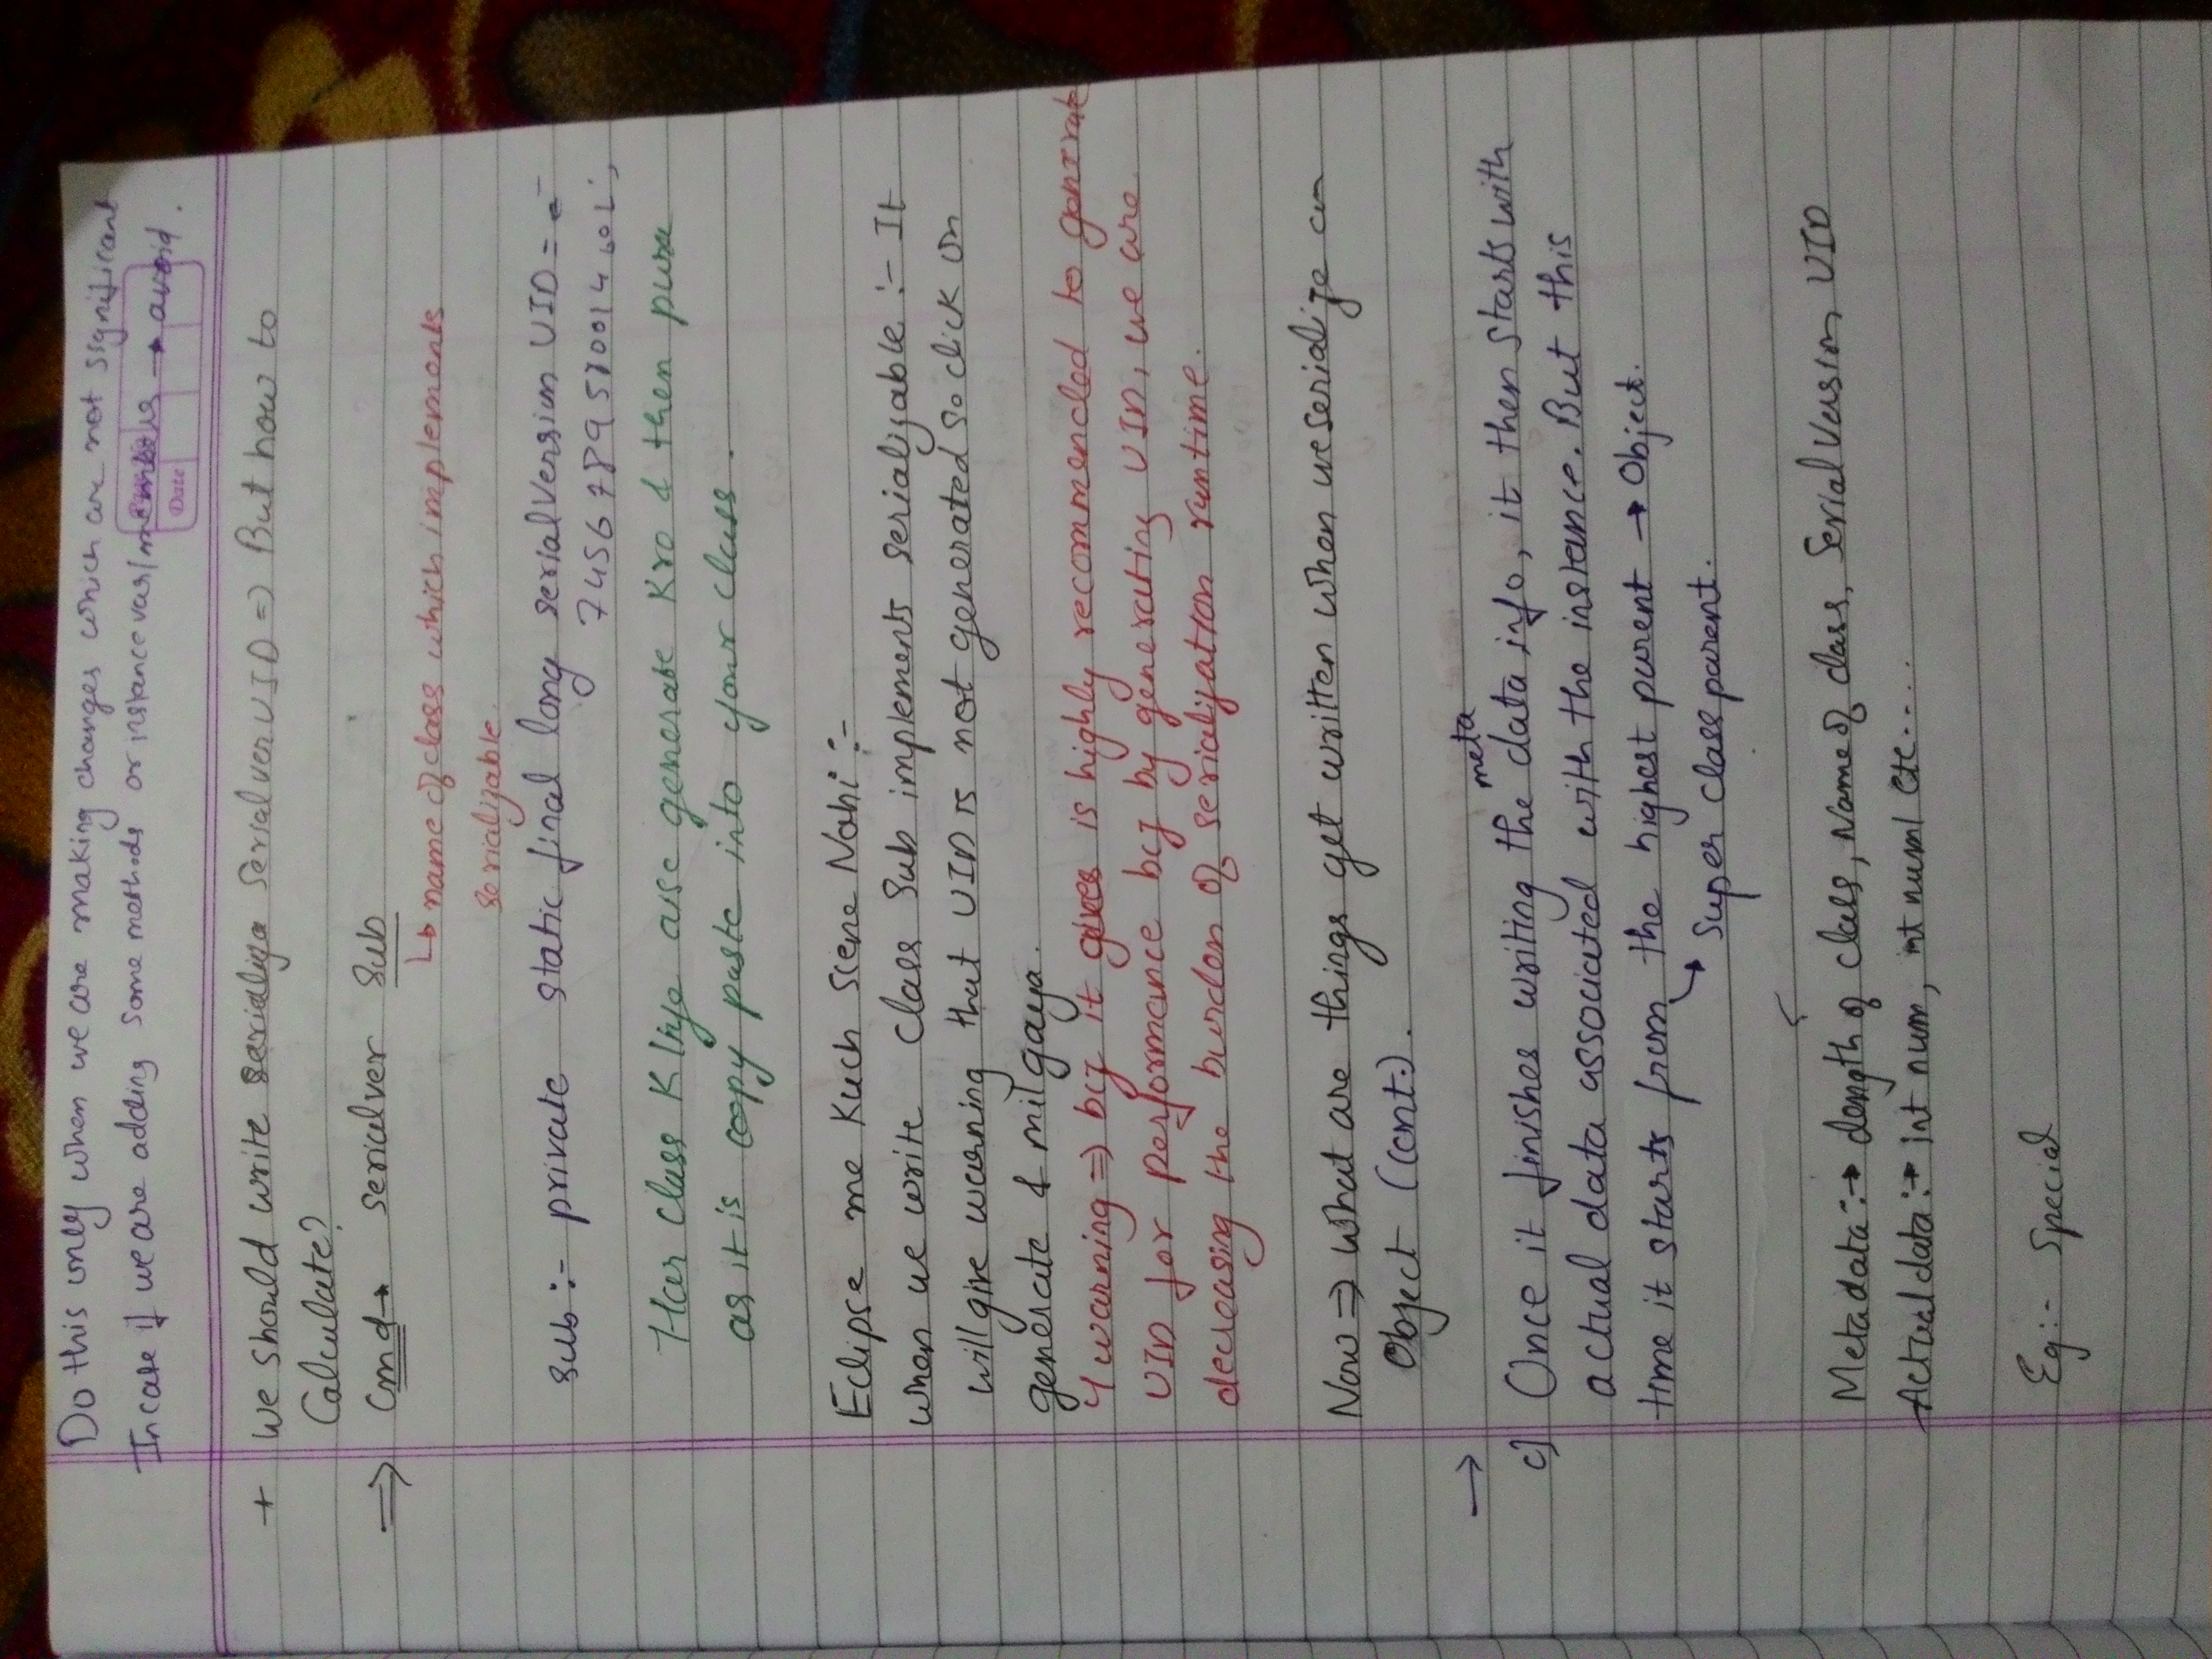 Do this only when we are making changes which are not significant
In case if we are adding some methods or instance var/members → avoid.
Date
+ We should write serialize SerialverUID => But how to
Calculate?
=> Cmd → serialver Sub
↳ name of class which implements
serializable.
Sub :- private static final long serialVersion UID = -
7456789580014601L;
Har class K liye aise generate Kro & then pura
as it is copy paste into your class.
Eclipse me Kuch Scene Nahi :-
When we write class Sub implements serializable :- It
will give warning that UID is not generated so click on
generate & mil gaya.
↳ warning => bcz it gives is highly recommended to generate
UID for performance bcz by generating UID, we are
decreasing the burden of serialization runtime.
Now => What are things get written when we serialize an
Object (cont.).
→
meta
c] Once it finishes writing the data info, it then starts with
actual data associated with the instance. But this
time it starts from the highest parent → Object.
↳ Super class parent.
Metadata :→ length of class, Name of class, Serial Version UID
Actual data :→ int num, int num1 etc....
Eg :- Special